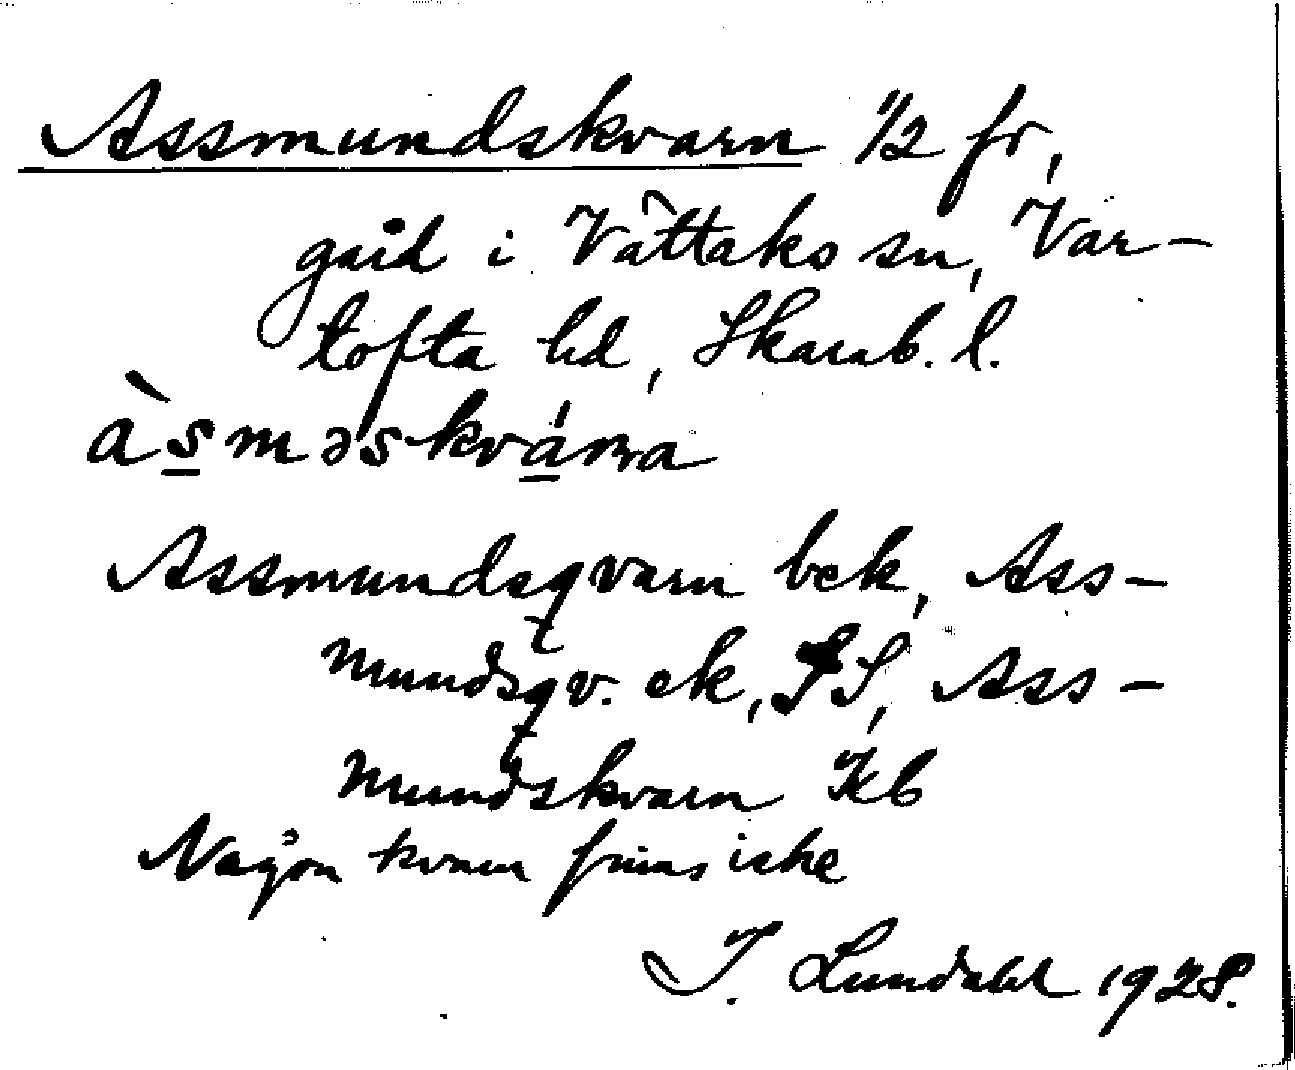 Assmundskvarn 1/2 fr,
gård i Vättaks sn, Var-
tofta hd, Skarab. l.
àsməskvána
Assmundsqvarn bek, Ass-
mundsqv. ek, SS, Ass-
mundskvarn Kb
Någon kvarn finns icke
I. Lundahl 1928.